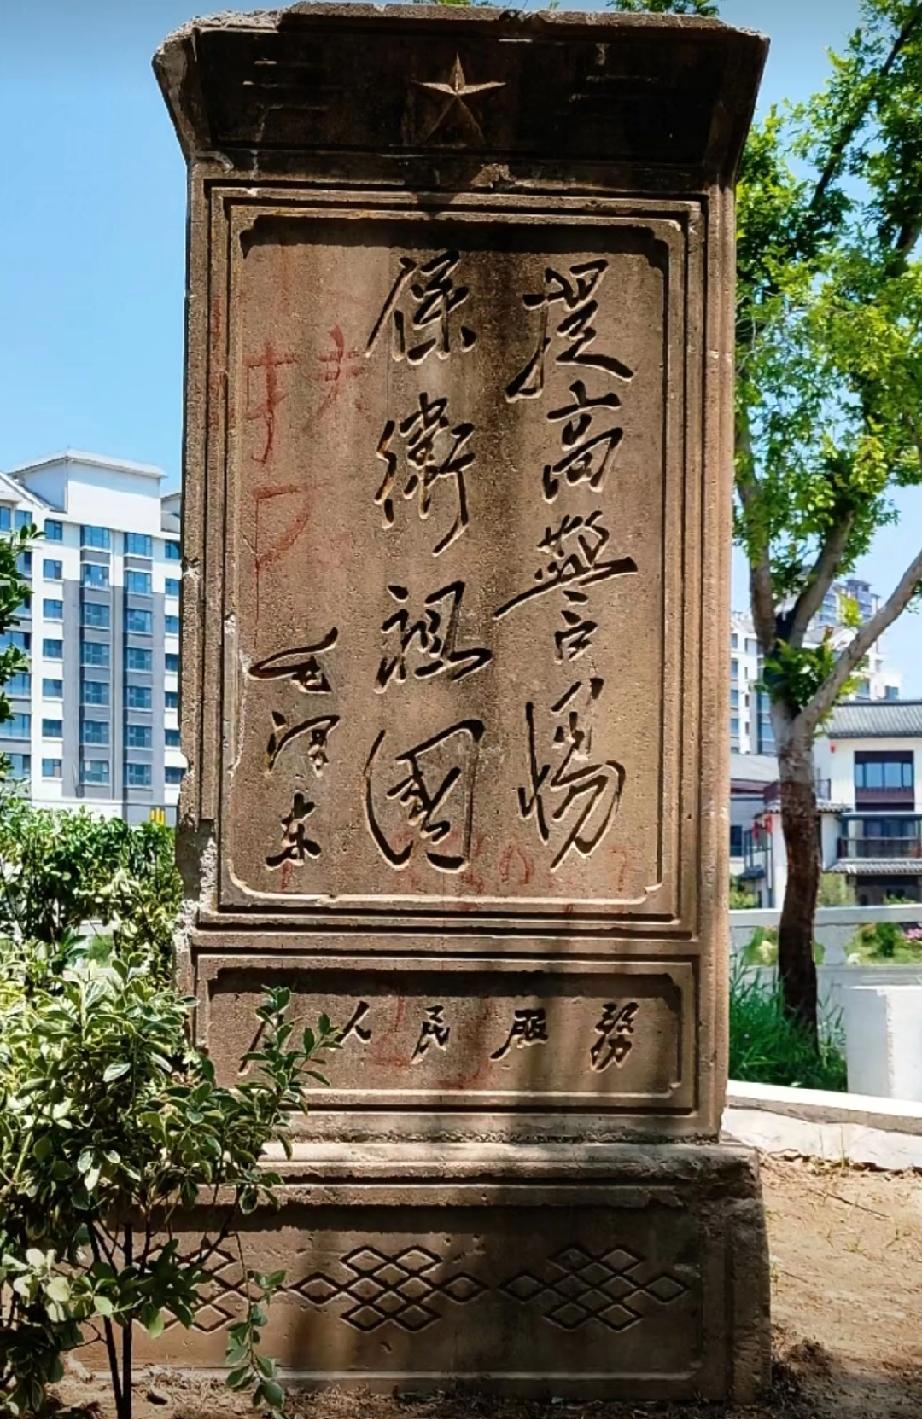 提高警惕
保衛祖國
毛泽东
为人民服務